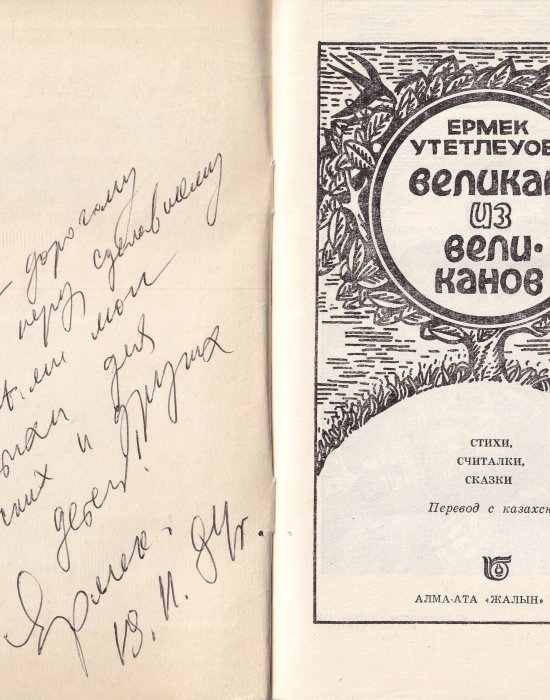 дорогому
перу, сделавшему
мои
для
их и других
детей!
Ермек.
19.11.84г.
ЕРМЕК
УТЕТЛЕУОВ
ВЕЛИКАН
ИЗ
ВЕЛИ-
КАНОВ
СТИХИ,
СЧИТАЛКИ,
СКАЗКИ
Перевод с казахск
АЛМА-АТА «ЖАЛЫН»